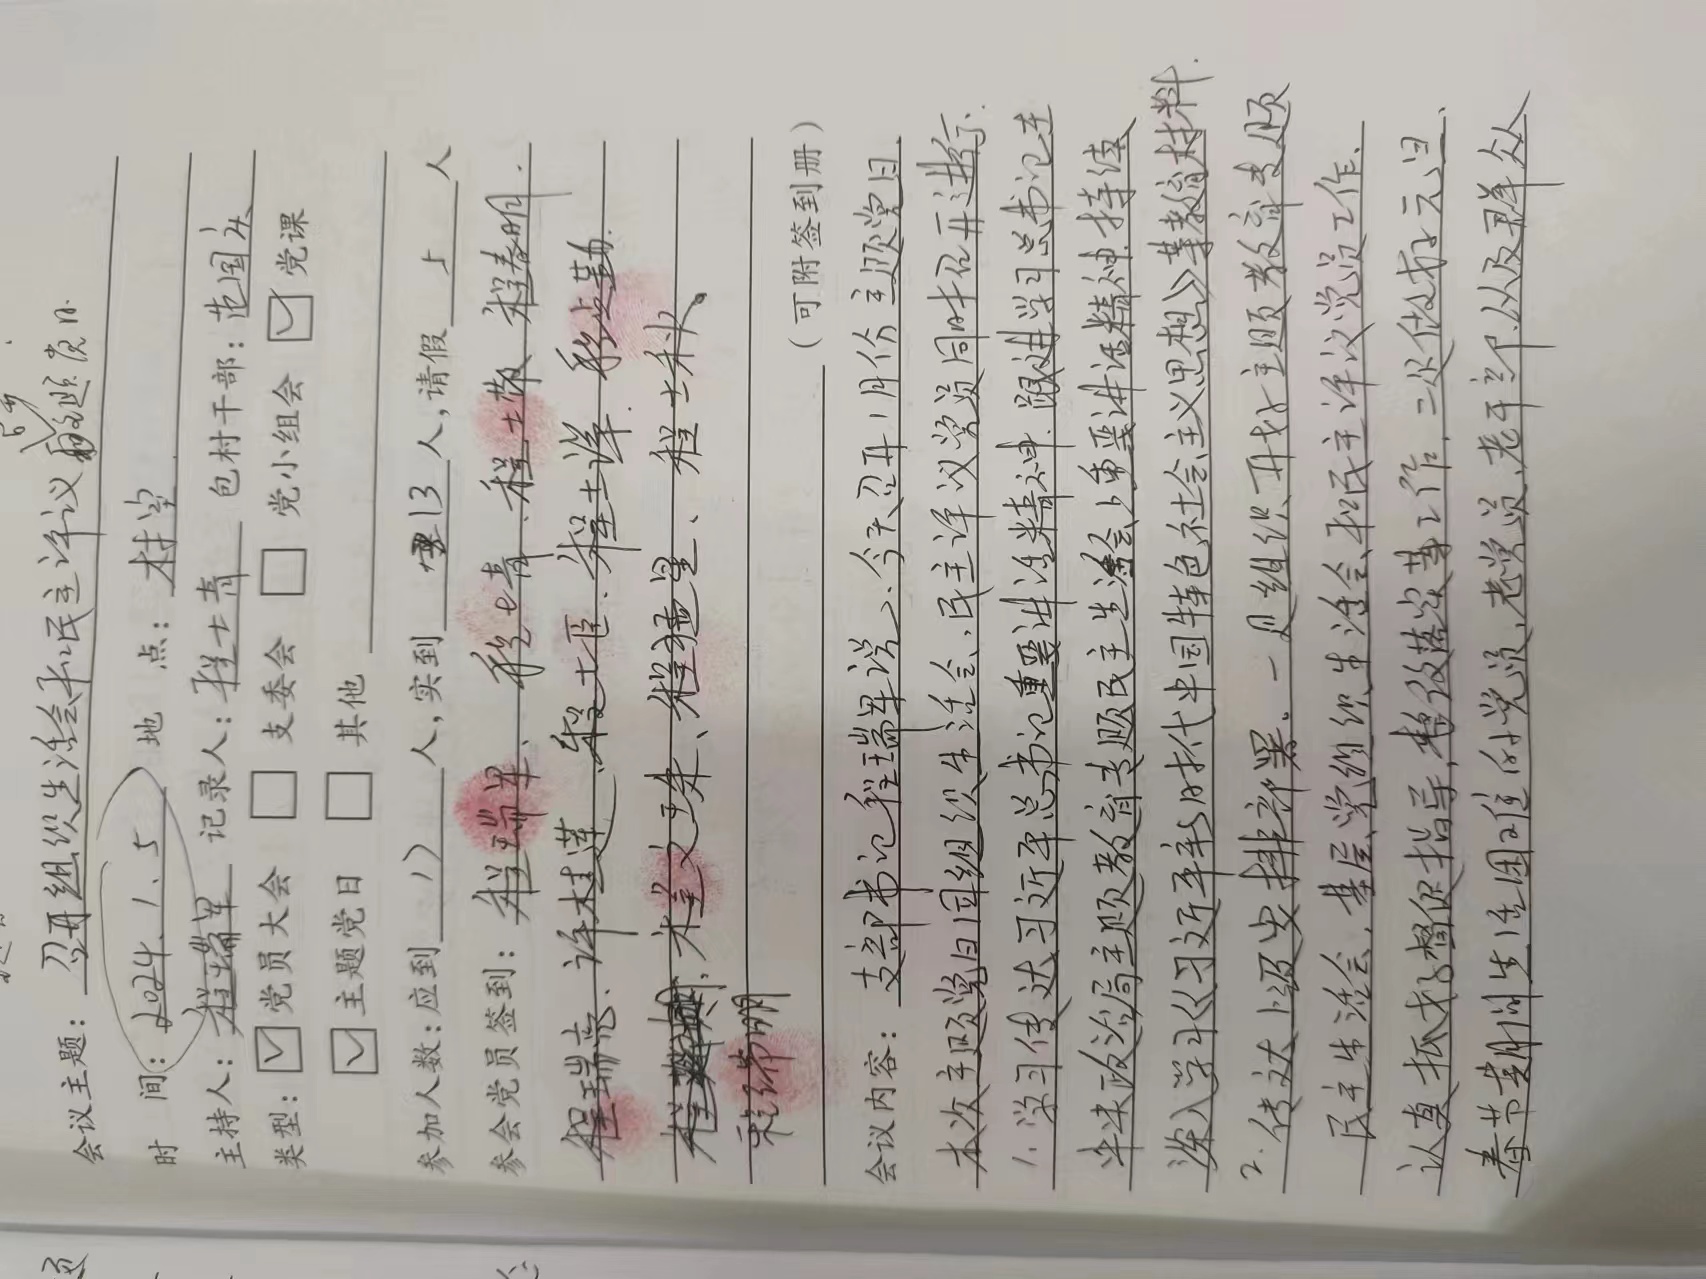 会议主题：召开组织生活会和民主评议 主题党日
时 间：2024.1.5 地 点：村室
主持人：程瑞军 记录人：程士青 包村干部：范国
类型：☑党员大会 □支委会 □党小组会 ☑党课
☑主题党日 □其他
参加人数：应到 17 人，实到 13 人，请假 人
参会党员签到：程瑞军、程士青、程士荣、程春明.
程瑞亮、许桂莲、程士臣、程士洋.
程文珠、程猛星、程士秋。
（可附签到册）
会议内容：支部书记程瑞军说：今天召开1月份主题党日
本次主题党日围组织生活会、民主评议党员同时召开进行.
1.学习传达习近平总书记重要讲话精神.跟进学习总书记在
中央政治局主题教育专题民主生活会上重要讲话精神.持续
深入学习《习近平新时代中国特色社会主义思想》等教育材料.
2.传达上级安排部署。一是组织开好主题教育专题
民主生活会、基层党组织生活会和民主评议党员工作、
认真抓好督促指导,整改落实等工作.二是做好元旦、
春节期间生活困难的党员、老党员、老干部以及群众